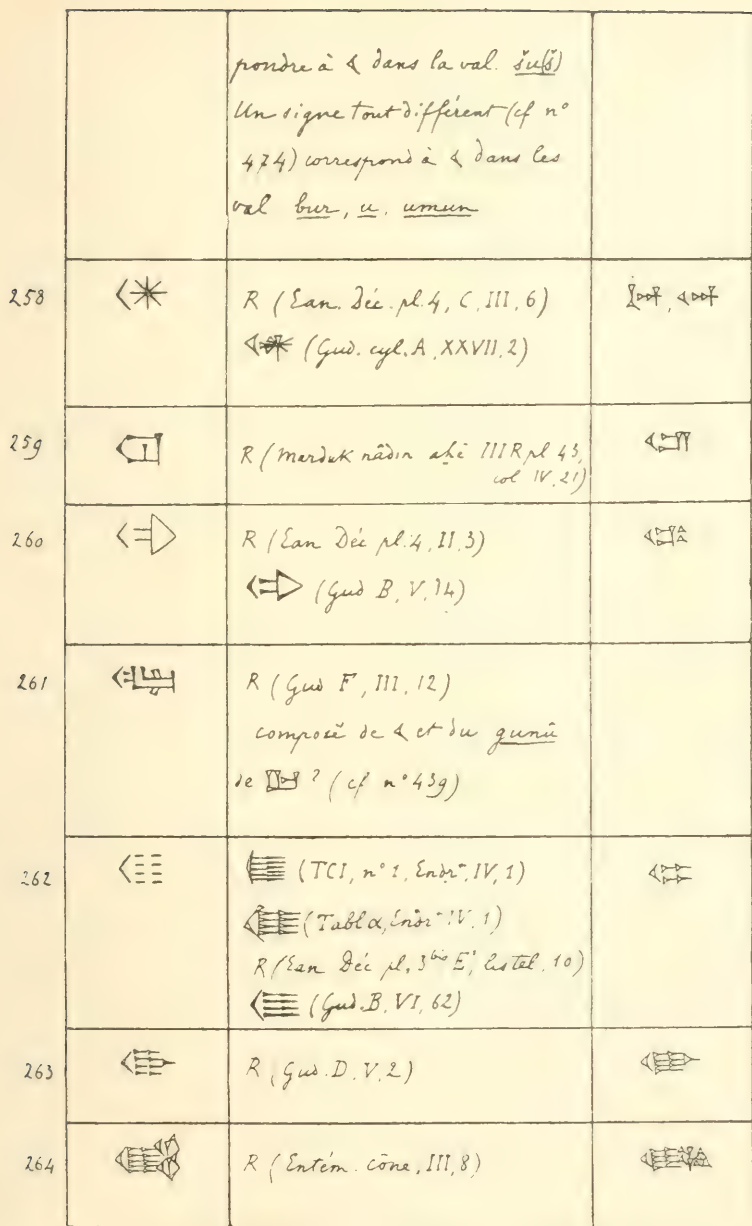 pondre à 𒌋 dans la val. šu(š)
Un signe tout différent (cf n°
474) correspond à 𒌋 dans les
val bur, u, umun
258
R (Ean. Déc. pl. 4, C, III, 6)
(Gud. cyl. A, XXVII, 2)
259
R (Marduk nâdin aḫê III R pl 43,
col IV, 21)
260
R (Ean Déc pl. 4, II, 3)
(Gud B, V, 14)
261
R (Gud F, III, 12)
composé de 𒌋 et du gunû
de ? (cf n° 439)
262
(TCI, n° 1, Endrt, IV, 1)
(Tabl α, Endrt IV, 1)
R (Ean Déc pl. 3 bis E', listel, 10)
(Gud. B, VI, 62)
263
R (Gud. D, V, 2)
264
R (Entém. cône, III, 8)